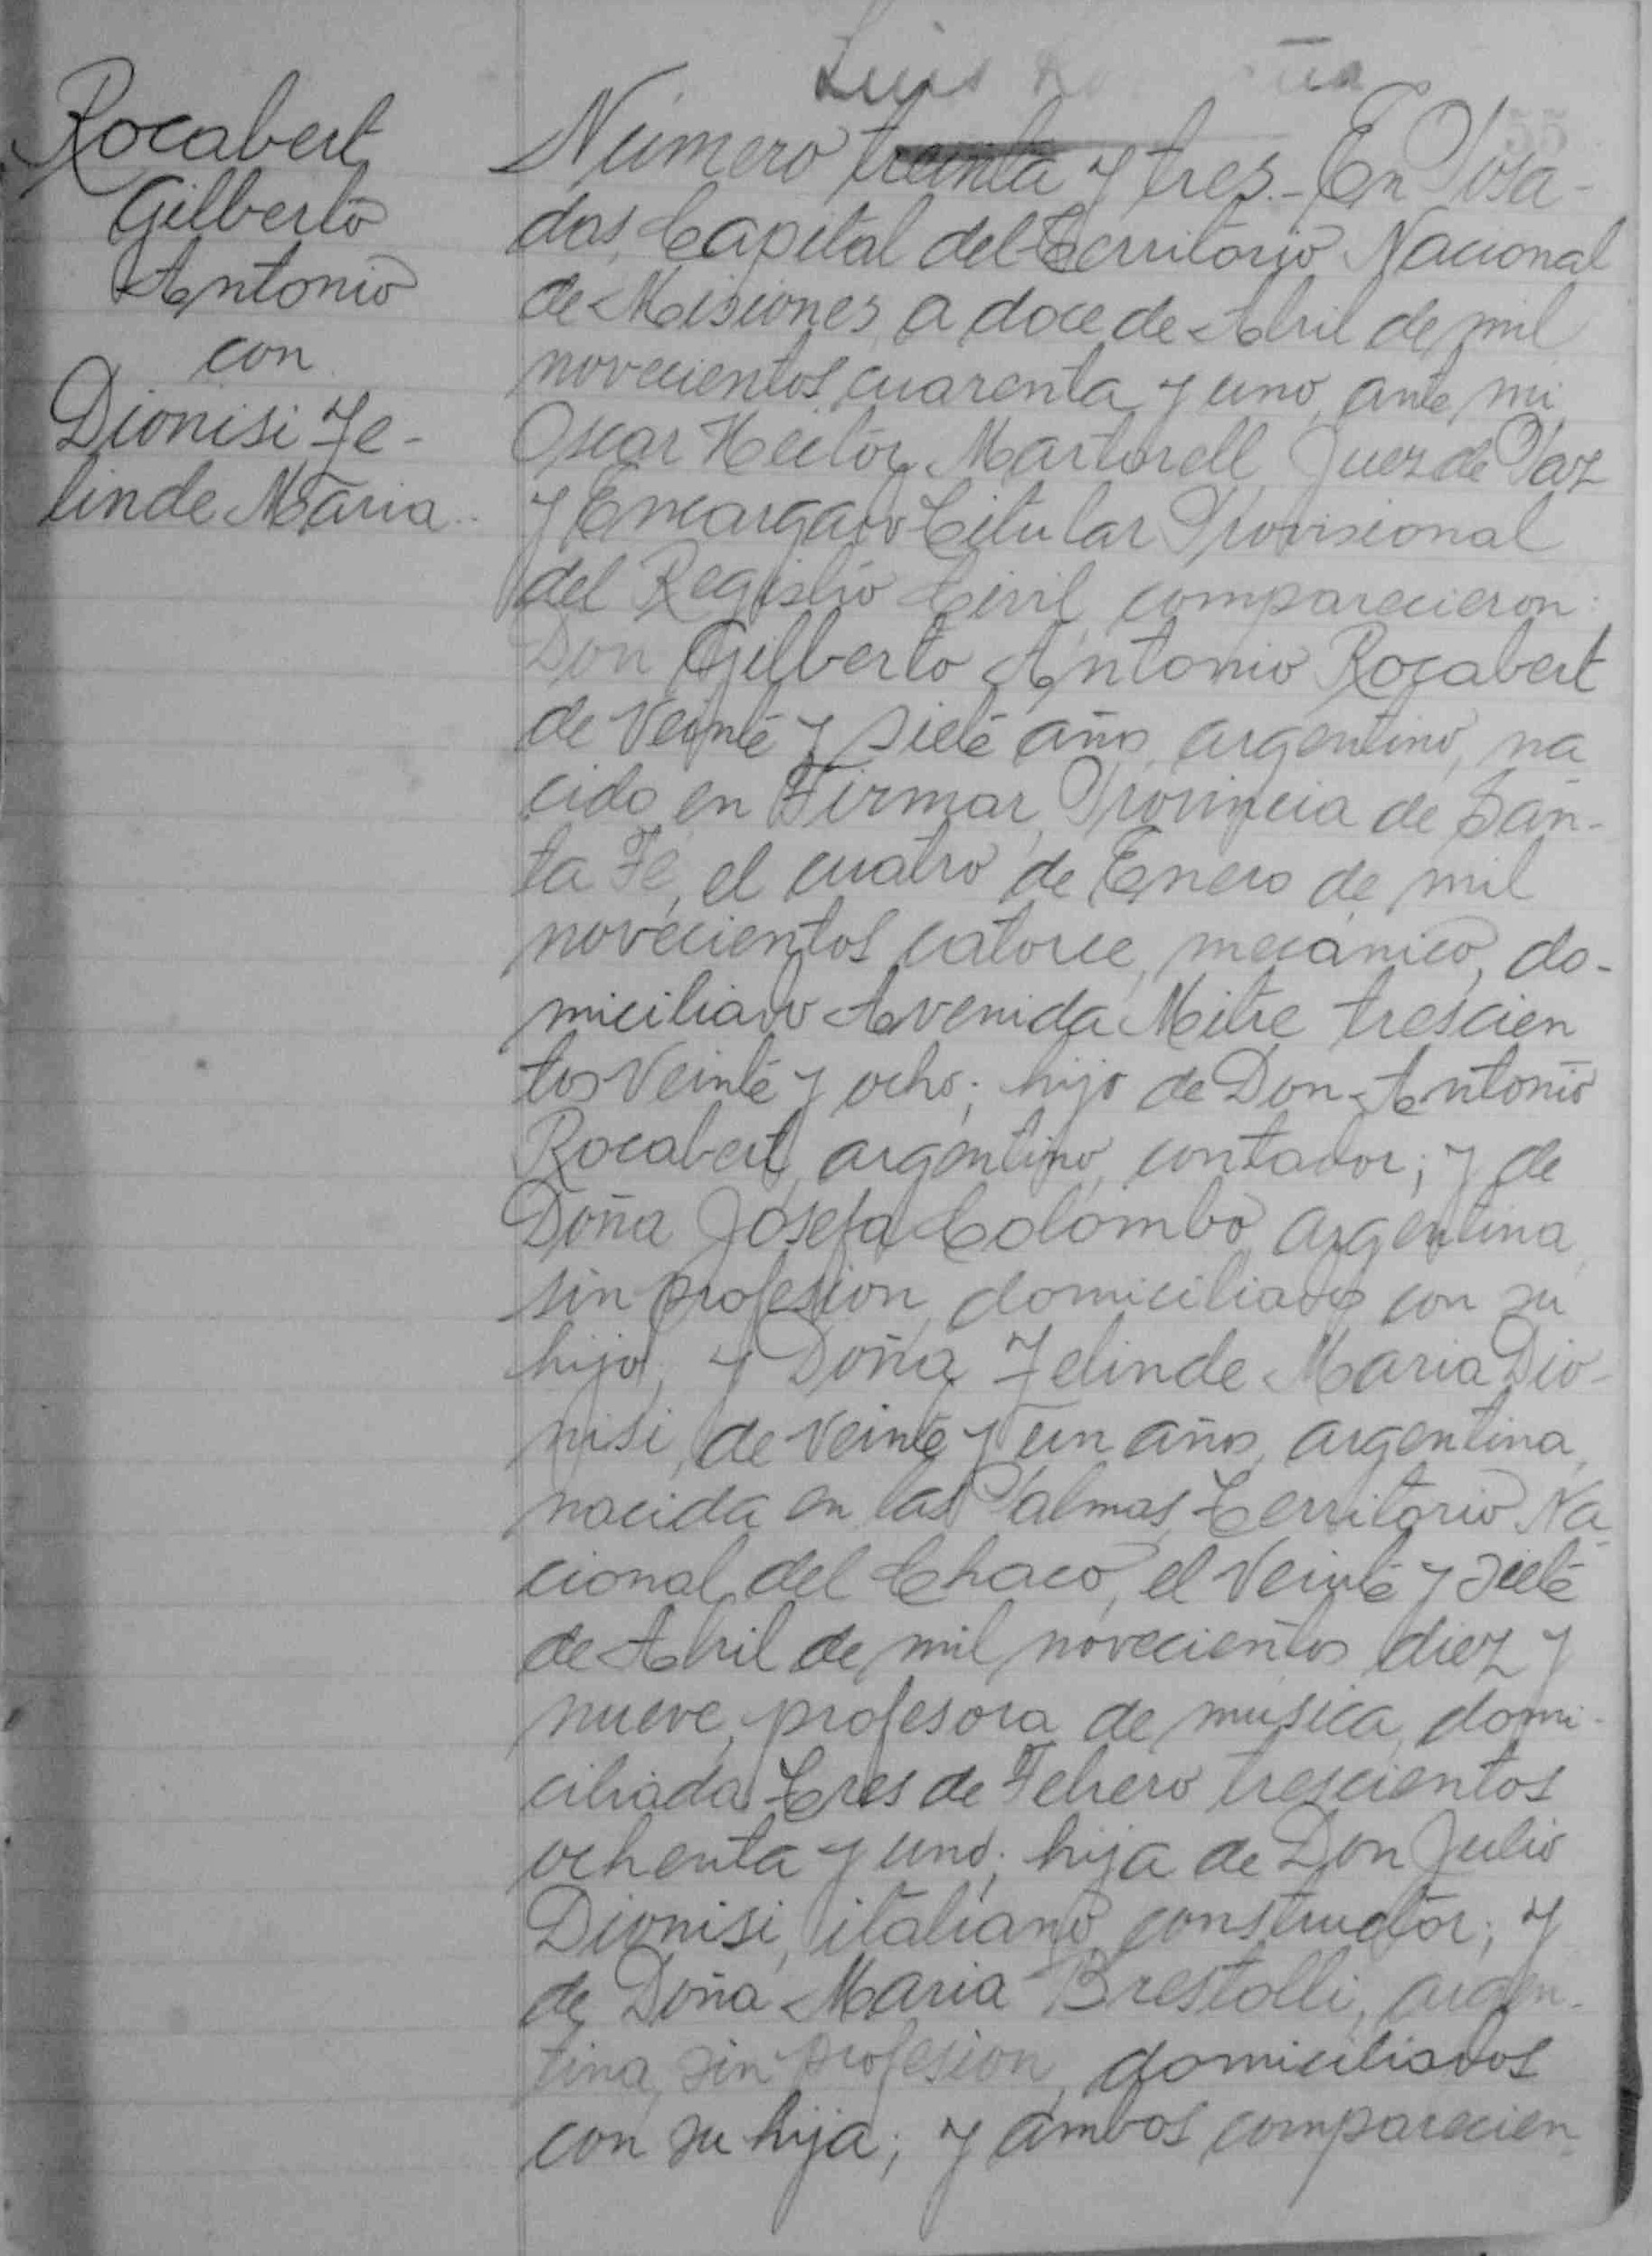 Luis
55
Rocabert
Gilberto
Antonio
con
Dionisi Fe-
linde Maria.
Número treinta y tres.- En Posa-
das, Capital del Territorio Nacional
de Misiones, a doce de Abril de mil
novecientos cuarenta y uno, ante mi
Oscar Hector Martorell, Juez de Paz
y Encargado Titular Provisional
del Registro Civil, comparecieron:
Don Gilberto Antonio Rocabert
de veinte y siete años, argentino, na
cido en Firmar, Provincia de San-
ta Fé, el cuatro de Enero de mil
novecientos catorce, mecánico, do-
miciliado Avenida Mitre trescien
tos veinte y ocho; hijo de Don Antonio
Rocabert, argentino, contador; y de
Doña Josefa Colombo, argentina,
sin profesion, domiciliados con su
hijo; y Doña Felinde Maria Dio-
nisi, de veinte y un años, argentina,
nacida en las Palmas, Territorio Na
cional del Chaco, el veinte y siete
de Abril de mil novecientos diez y
nueve, profesora de musica, domi-
ciliada Tres de Febrero trescientos
ochenta y uno; hija de Don Julio
Dionisi, italiano, constructor; y
de Doña Maria Brestolli, argen-
tina, sin profesion, domiciliados
con su hija; y ambos comparecien